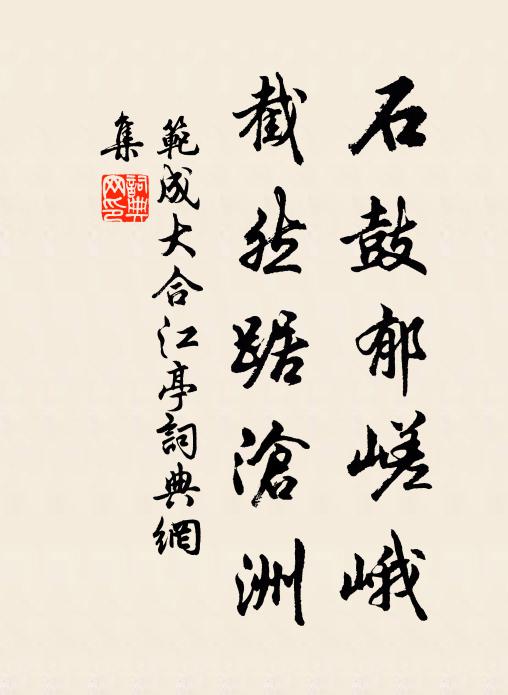 石鼓郁嵯峨
截然踞滄洲
範成大合江亭詞典網
集
詞典
网印